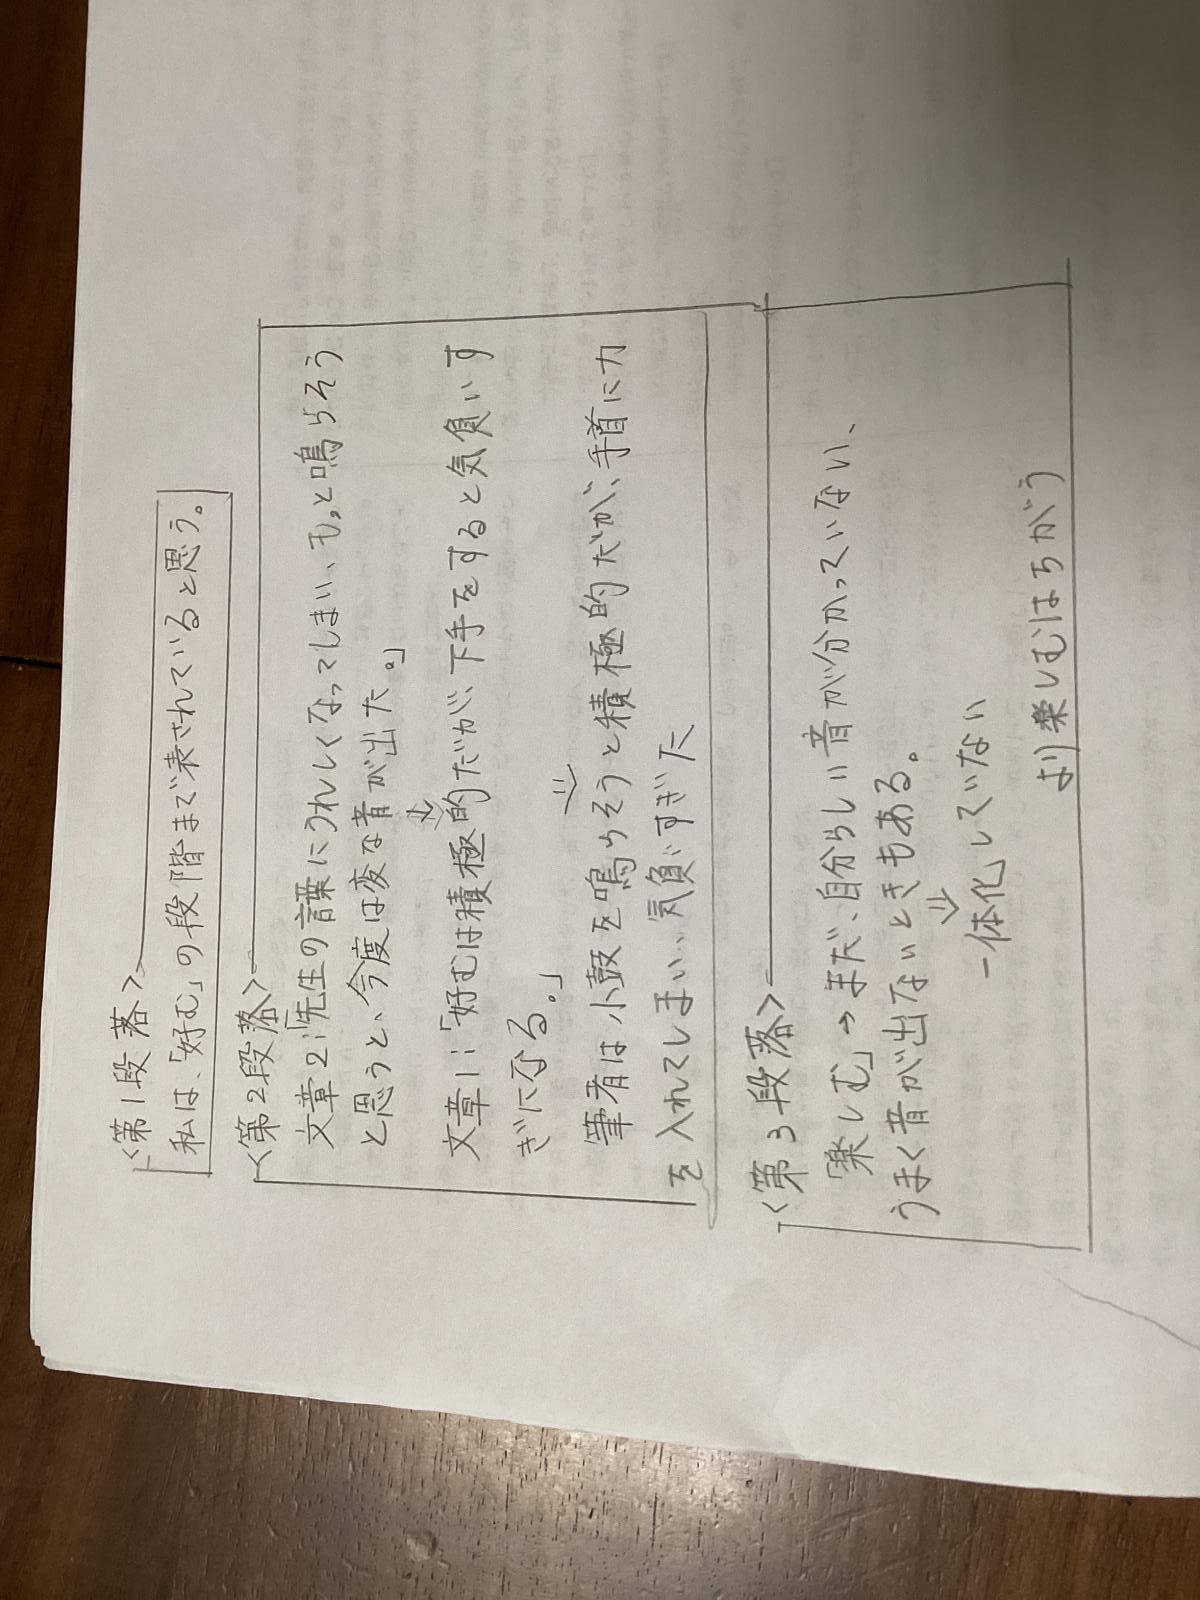 <第1段落>
私は、「好む」の段階まで表されていると思う。
<第2段落>
文章2:「先生の言葉にうれしくなってしまい、もっと鳴らそう
と思うと、今度は変な音が出た。」
⇓
文章1:「好むは積極的だが、下手をすると気負いす
ぎになる。」
⇓
筆者は小鼓を鳴らそうと積極的だが、手首に力
を入れてしまい、気負いすぎた
<第3段落>
「楽しむ」→まだ、自分らしい音が分かっていない、
うまく音が出ないときもある。
⇓
一体化していない
より楽しむはちがう